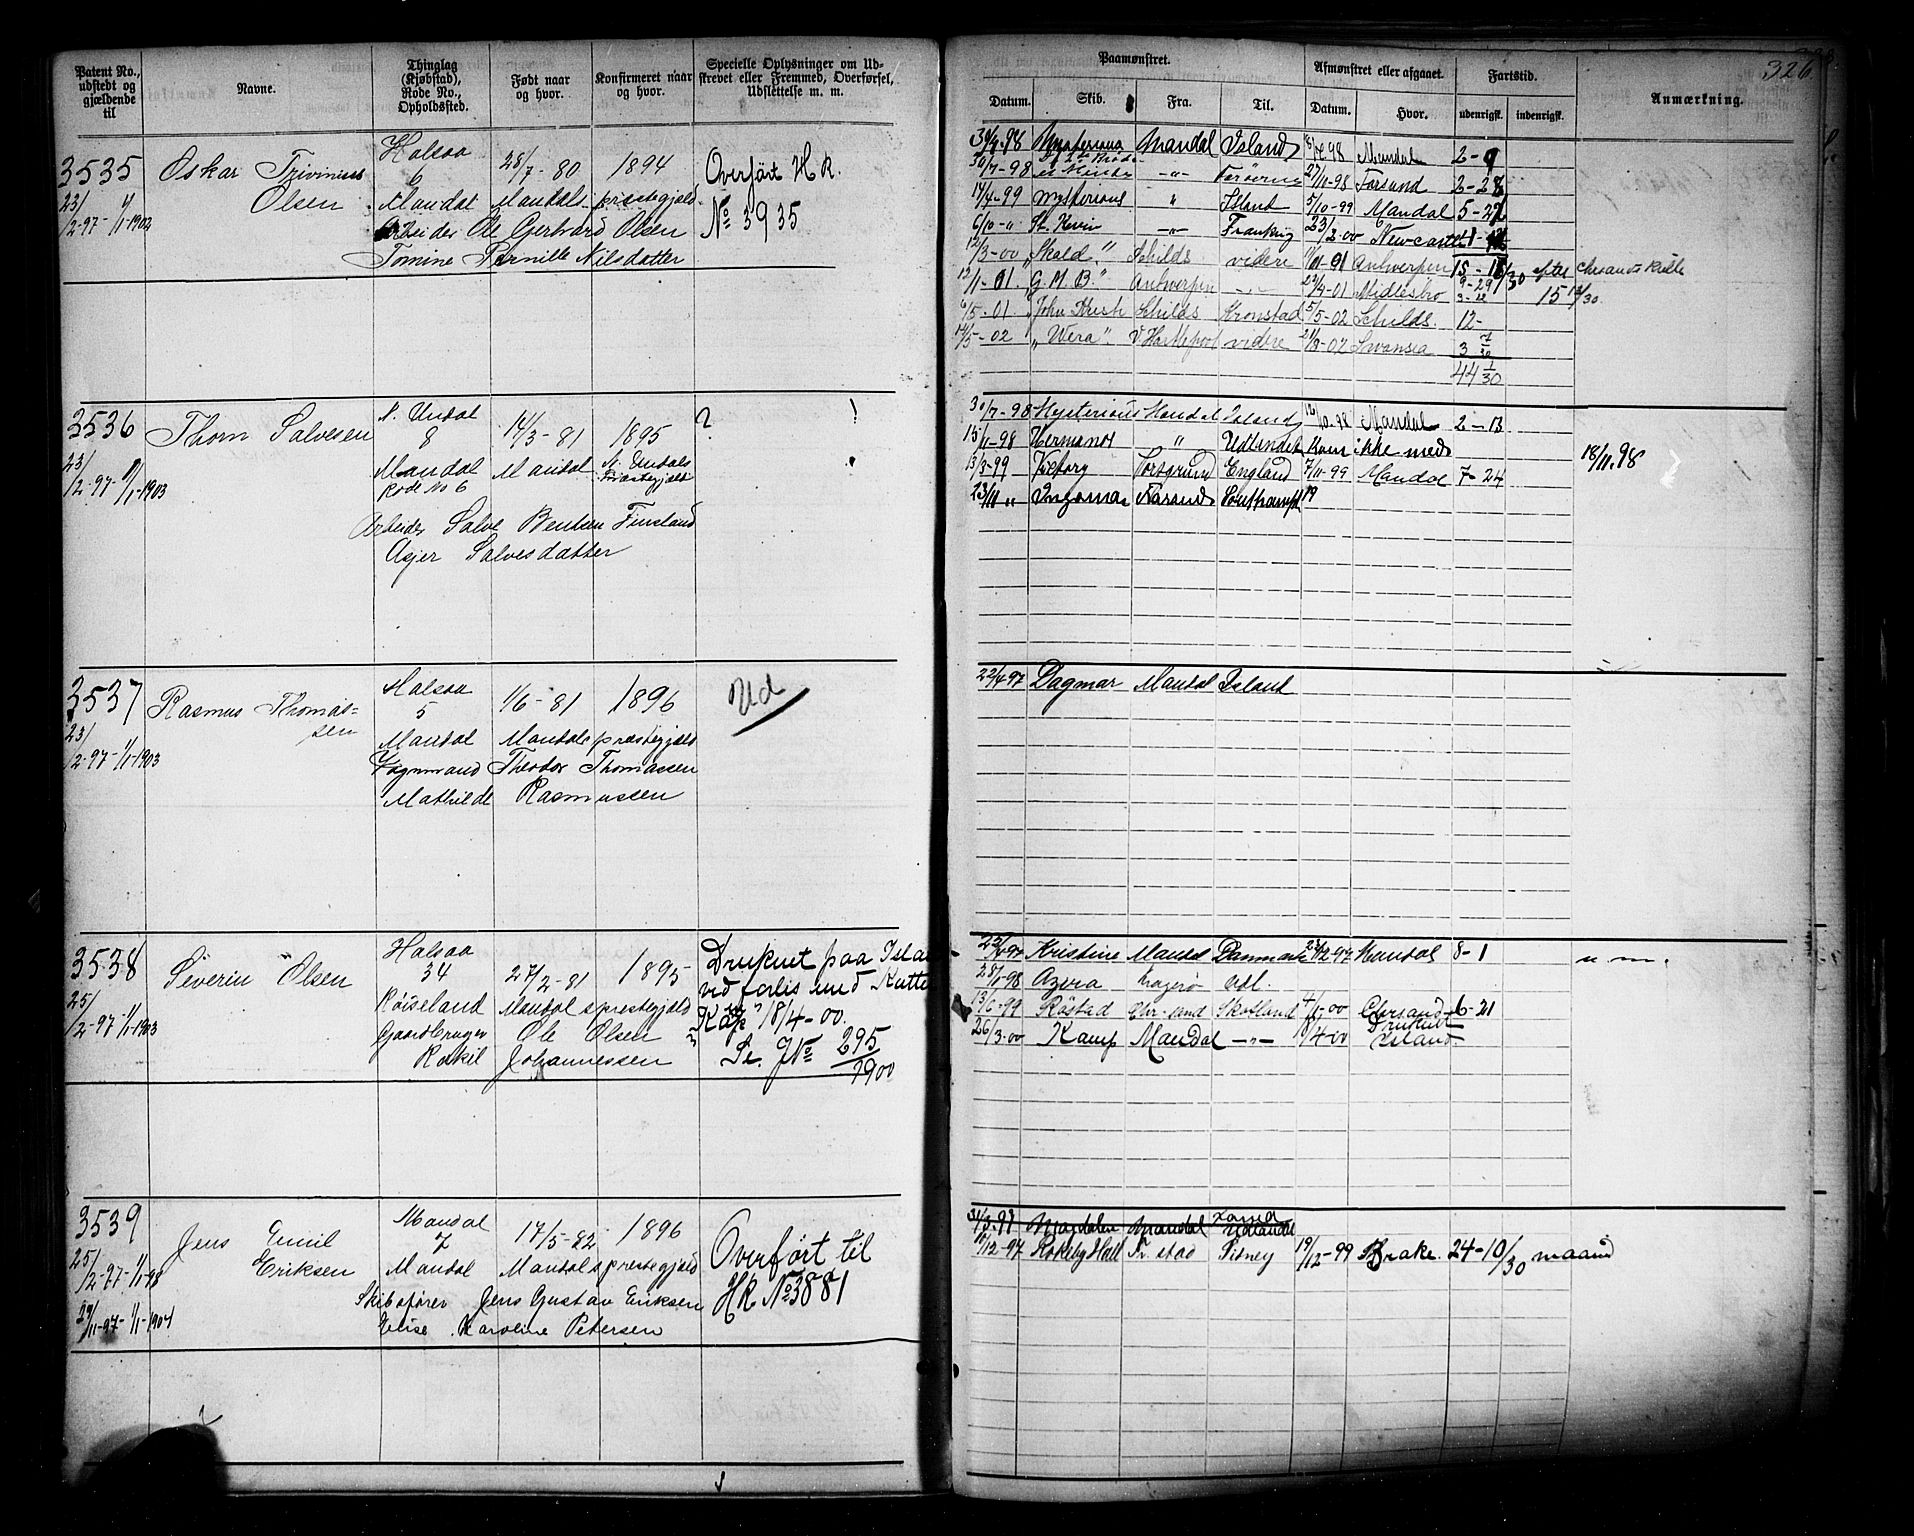 Patent No., udstedt og gjældende til
Navne.
Thinglag (Kjøbstad), Rode No., Opholdssted.
Født naar og hvor.
Konfirmeret naar og hvor.
Specielle Oplysninger om Udskrevet eller Fremmed, Overførsel, Udslettelse m. m.
3535
Oskar Trivinius
Halsaa
6
28/7-80
1894
Overført H.R.
23/2-97 1/1-1902
Olsen
Mandal
Mandals præstegjeld
No 3935
Arbeider Ole Gerhard Olsen
Tomine Pernille Nilsdatter
3536
Thom Salvesen
N. Undal
8
14/3-81
1895
? !
23/2-97 1/1-1903
Mandal
Rode No 6
Mandal
N. Undals
Præstegjeld
Arbeider Salve Bentsen Finsland
Asjer Salvesdatter
3537
Rasmus Thomassen
Halsaa
5
1/6-81
1896
Ud
23/2-97-1/1-1903
Mandal
Mandals præstegjeld
Vognmand Theodor Thomassen
Mathilde Rasmussen
3538
Severin Olsen
Halsaa
34
27/2-81
1895
Druknet paa Isla
ved forlis med Kutte
25/2-97-1/1-1903
Røiseland
Mandals præstegjeld
"Kap" 18/4-00.
Gaardbruger Ole Olsen
Se JNo 295/1900
Rakil Johannessen
3539
Jens Emil
Mandal
7
17/5-82
1896
Overført til
25/2-97-1/1-98
Eriksen
Mandal
Mandals præstegjeld
HR No 3881
29/11-97-1/1-1904
Skibsfører Jens Gustav Eriksen
Elise Karoline Petersen
326
Paamønstret.
Afmønstret eller afgaaet.
Fartstid.
Anmærkning.
Datum.
Skib.
Fra.
Til.
Datum.
Hvor.
udenrigsk.
indenrigsk.
Mysterious Mandal Island Mandal 2-9
30/7-98 Færøerne 27/10-98 Farsund 2-28
14/4-99 Mysterious " Island 5/10-99 Mandal 5-22
6/10-" St. Kevin -"- Frankrig 23/2-00 Newcastle
12/3-00 "Skald." Schilds videre Antwerpen
12/1-01. "G.M.B." Antwerpen -"- 29/4-01 Midlesbro 9-29/30 efter
6/5-01 Schilds Kronstad 5/5-02 Schilds. 12-
14/5-02 "Wera". V Hartlepool videre 21/8-02 Swansea 3 7/30
44 1/30
30/7-98 Mysterious Mandal Island Mandal 2-13
15/11-98 Hermanos " Udlandet Kom ikke med 18/11.98
13/3-99 Victory Porsgrund England 7/11-99 Mandal 7-24
23/11 " Ingomar Farsund Southampt 19
22/4 97 Dagmar Mandal Island
Kristine Mandal Danmark 23/12-97 Mandal 8-1
28/1-98 Azera Udl.
13/6-99 Røstad Chr-sand Skotland 4/1-00 Chrsand 6-21
26/3-00 Kamp Mandal -"- 18/4-00 Druknet Island.
31/3-97 Magdalene Mandal Udlandet
10/12-97 Rokeby Hall Fr stad Sidney 19/12-99 Brake. 24-10/30 maaned